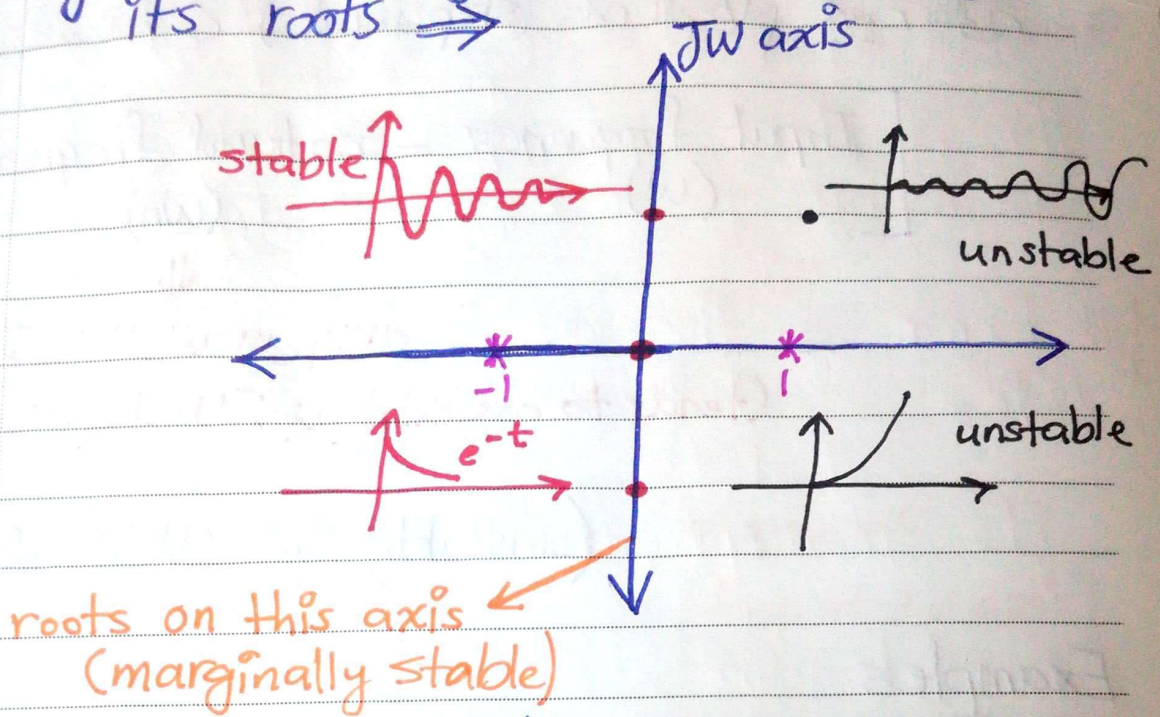 its roots ⇒
JW axis
stable
unstable
-1
1
e^-t
unstable
roots on this axis
(marginally stable)